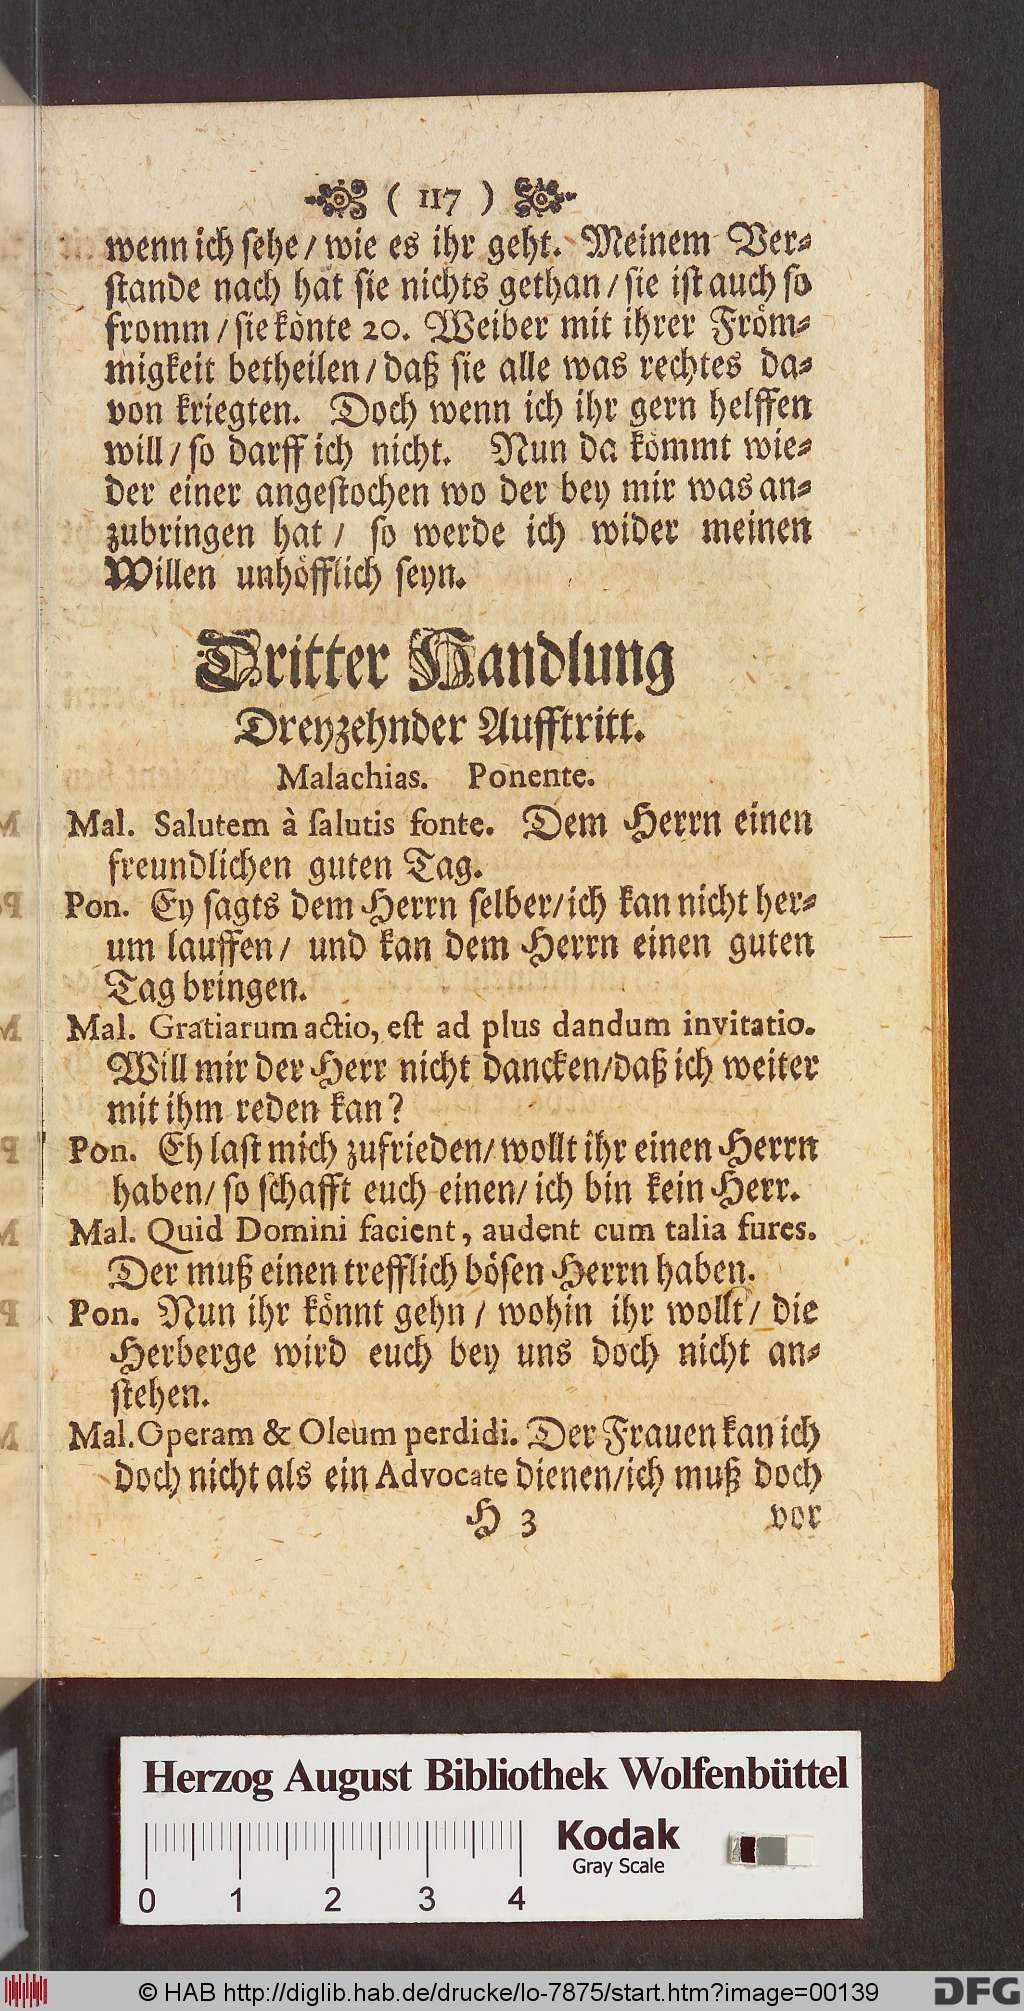 ( 117 )
wenn ich sehe / wie es ihr geht. Meinem Ver-
stande nach hat sie nichts gethan / sie ist auch so
fromm / sie könte 20. Weiber mit ihrer Fröm-
migkeit betheilen / daß sie alle was rechtes da-
von kriegten. Doch wenn ich ihr gern helffen
will / so darff ich nicht. Nun da kömmt wie-
der einer angestochen wo der bey mir was an-
zubringen hat / so werde ich wider meinen
Willen unhöfflich seyn.
Dritter Handlung
Dreyzehnder Aufftritt.
Malachias. Ponente.
Mal. Salutem à salutis fonte. Dem Herrn einen
freundlichen guten Tag.
Pon. Ey sagts dem Herrn selber/ ich kan nicht her-
um lauffen/ und kan dem Herrn einen guten
Tag bringen.
Mal. Gratiarum actio, est ad plus dandum invitatio.
Will mir der Herr nicht dancken/daß ich weiter
mit ihm reden kan?
Pon. Eh last mich zufrieden/ wollt ihr einen Herrn
haben/ so schafft euch einen/ ich bin kein Herr.
Mal. Quid Domini facient, audent cum talia fures.
Der muß einen trefflich bösen Herrn haben.
Pon. Nun ihr könnt gehn / wohin ihr wollt/ die
Herberge wird euch bey uns doch nicht an-
stehen.
Mal. Operam & Oleum perdidi. Der Frauen kan ich
doch nicht als ein Advocate dienen/ich muß doch
H 3 vor
Herzog August Bibliothek Wolfenbüttel
Kodak
Gray Scale
0 1 2 3 4
© HAB http://diglib.hab.de/drucke/lo-7875/start.htm?image=00139
DFG